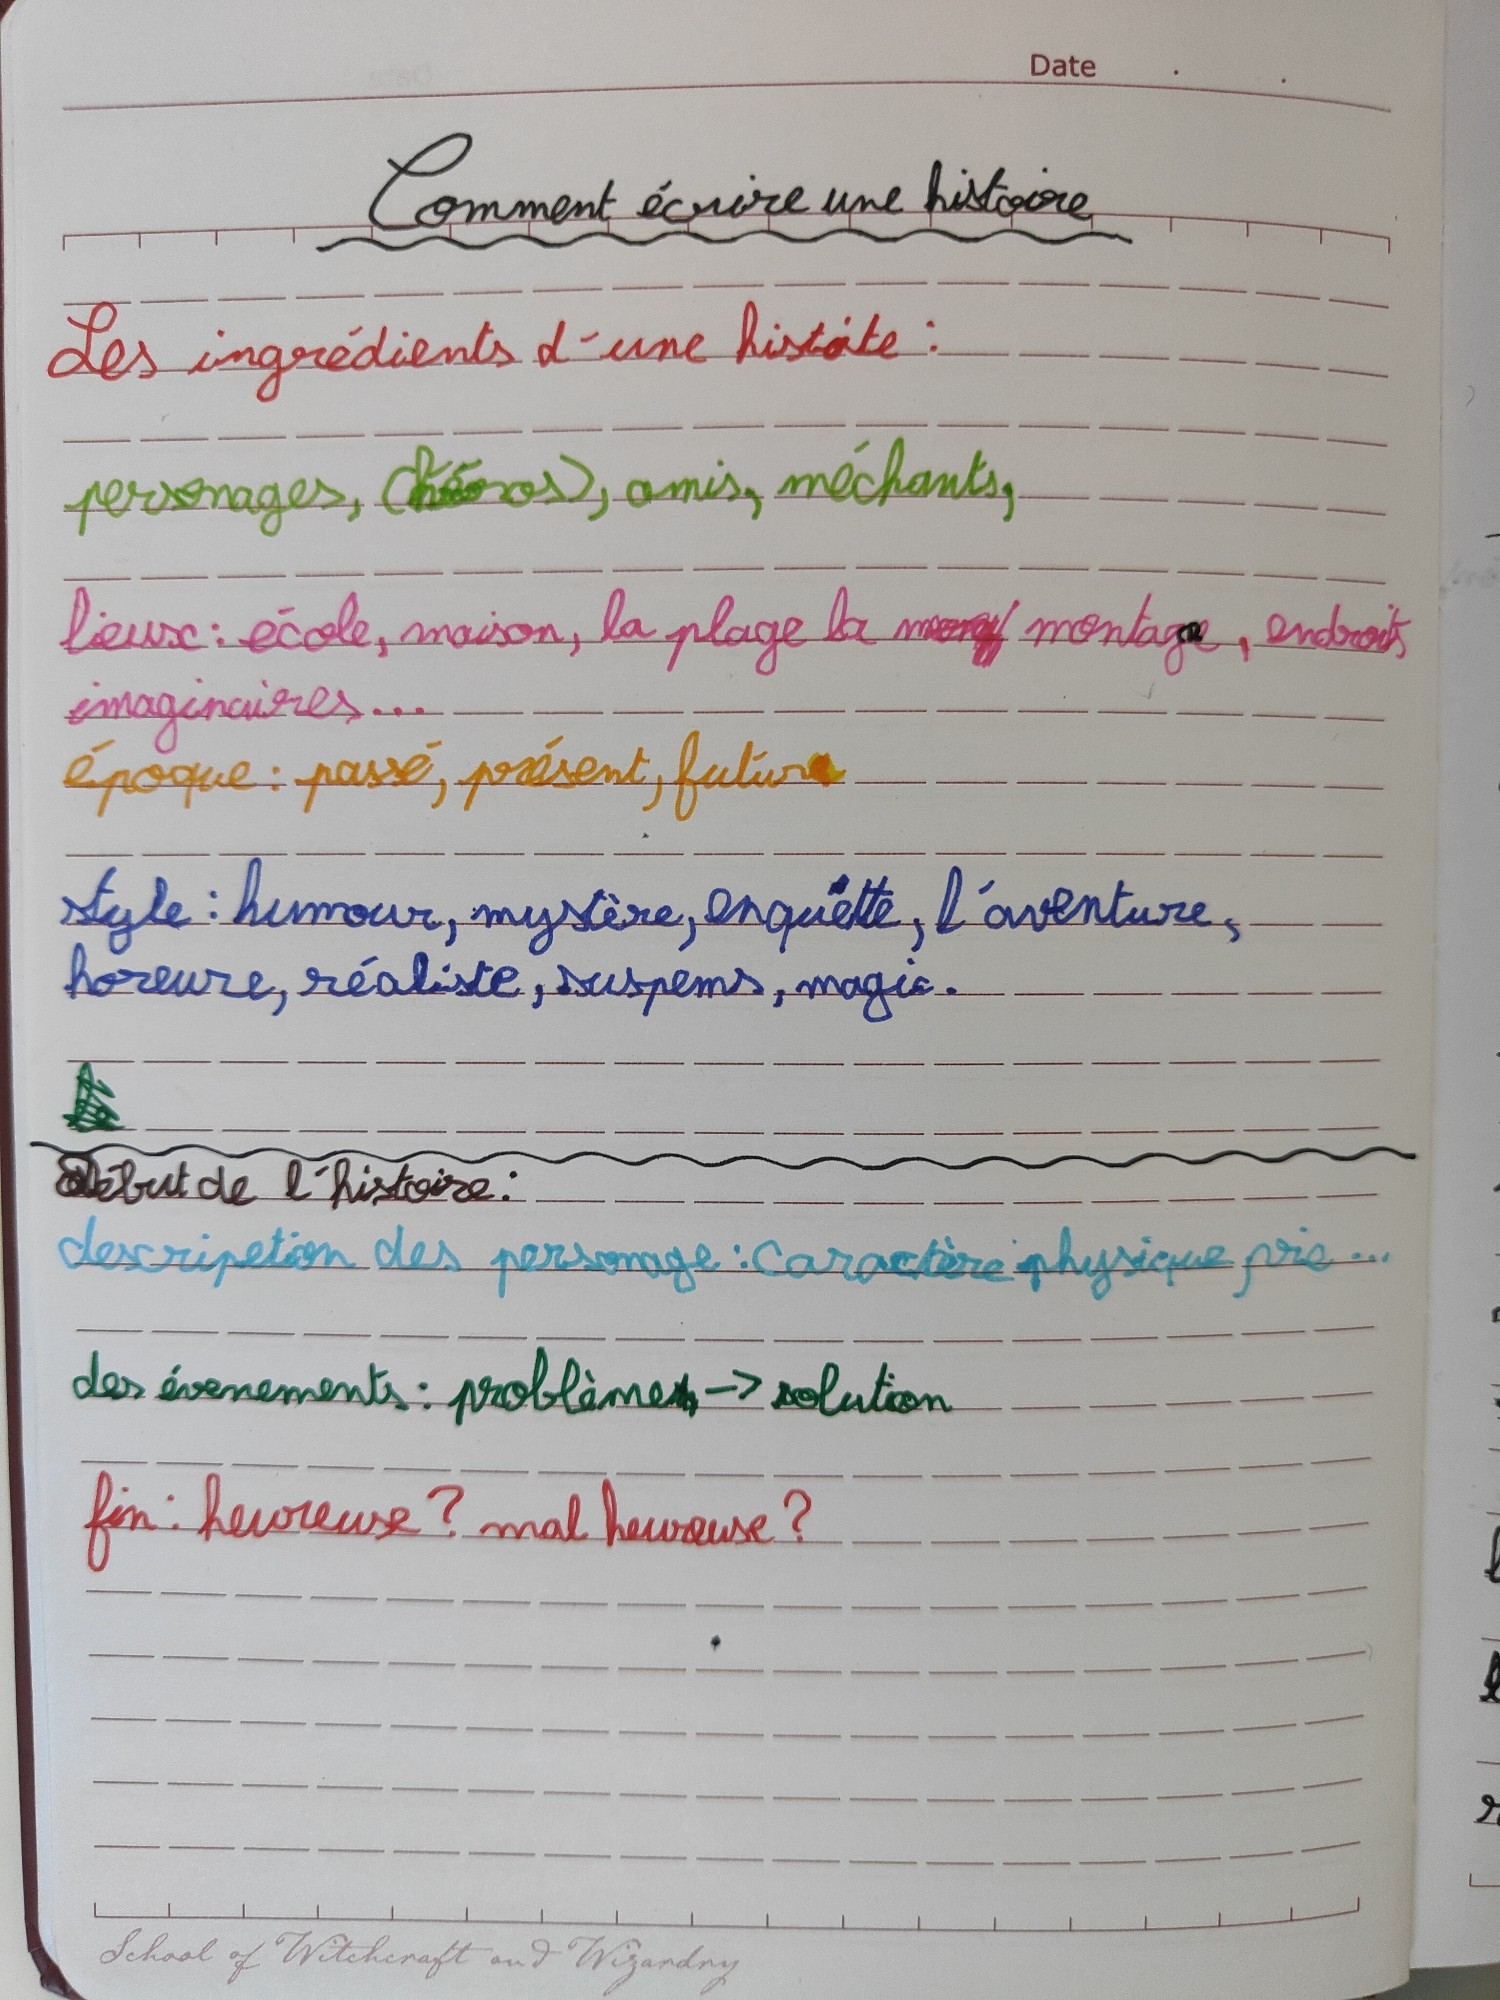 Date
Comment écrire une histoire
Les ingrédients d'une histoite :
personages, (héros), amis, méchants,
lieux : école, maison, la plage la montagne, endroits
imaginaires...
époque : passé, présent, futur
style : humour, mystère, enquêtte, l'aventure,
horeure, réaliste, suspems, magie.
Début de l'histoire :
descripetion des personage : caractère physique, vie ...
des évenements : problèmes -> solution
fin : heureuse ? mal heureuse ?
School of Witchcraft and Wizardry